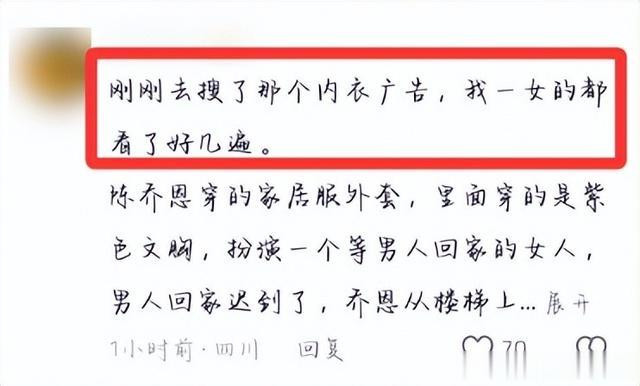 刚刚去搜了那个内衣广告，我一女的都
看了好几遍。
陈乔恩穿的家居服外套，里面穿的是紫
色文胸，扮演一个等男人回家的女人，
男人回家迟到了，乔恩从楼梯上... 展开
1小时前·四川 回复 70